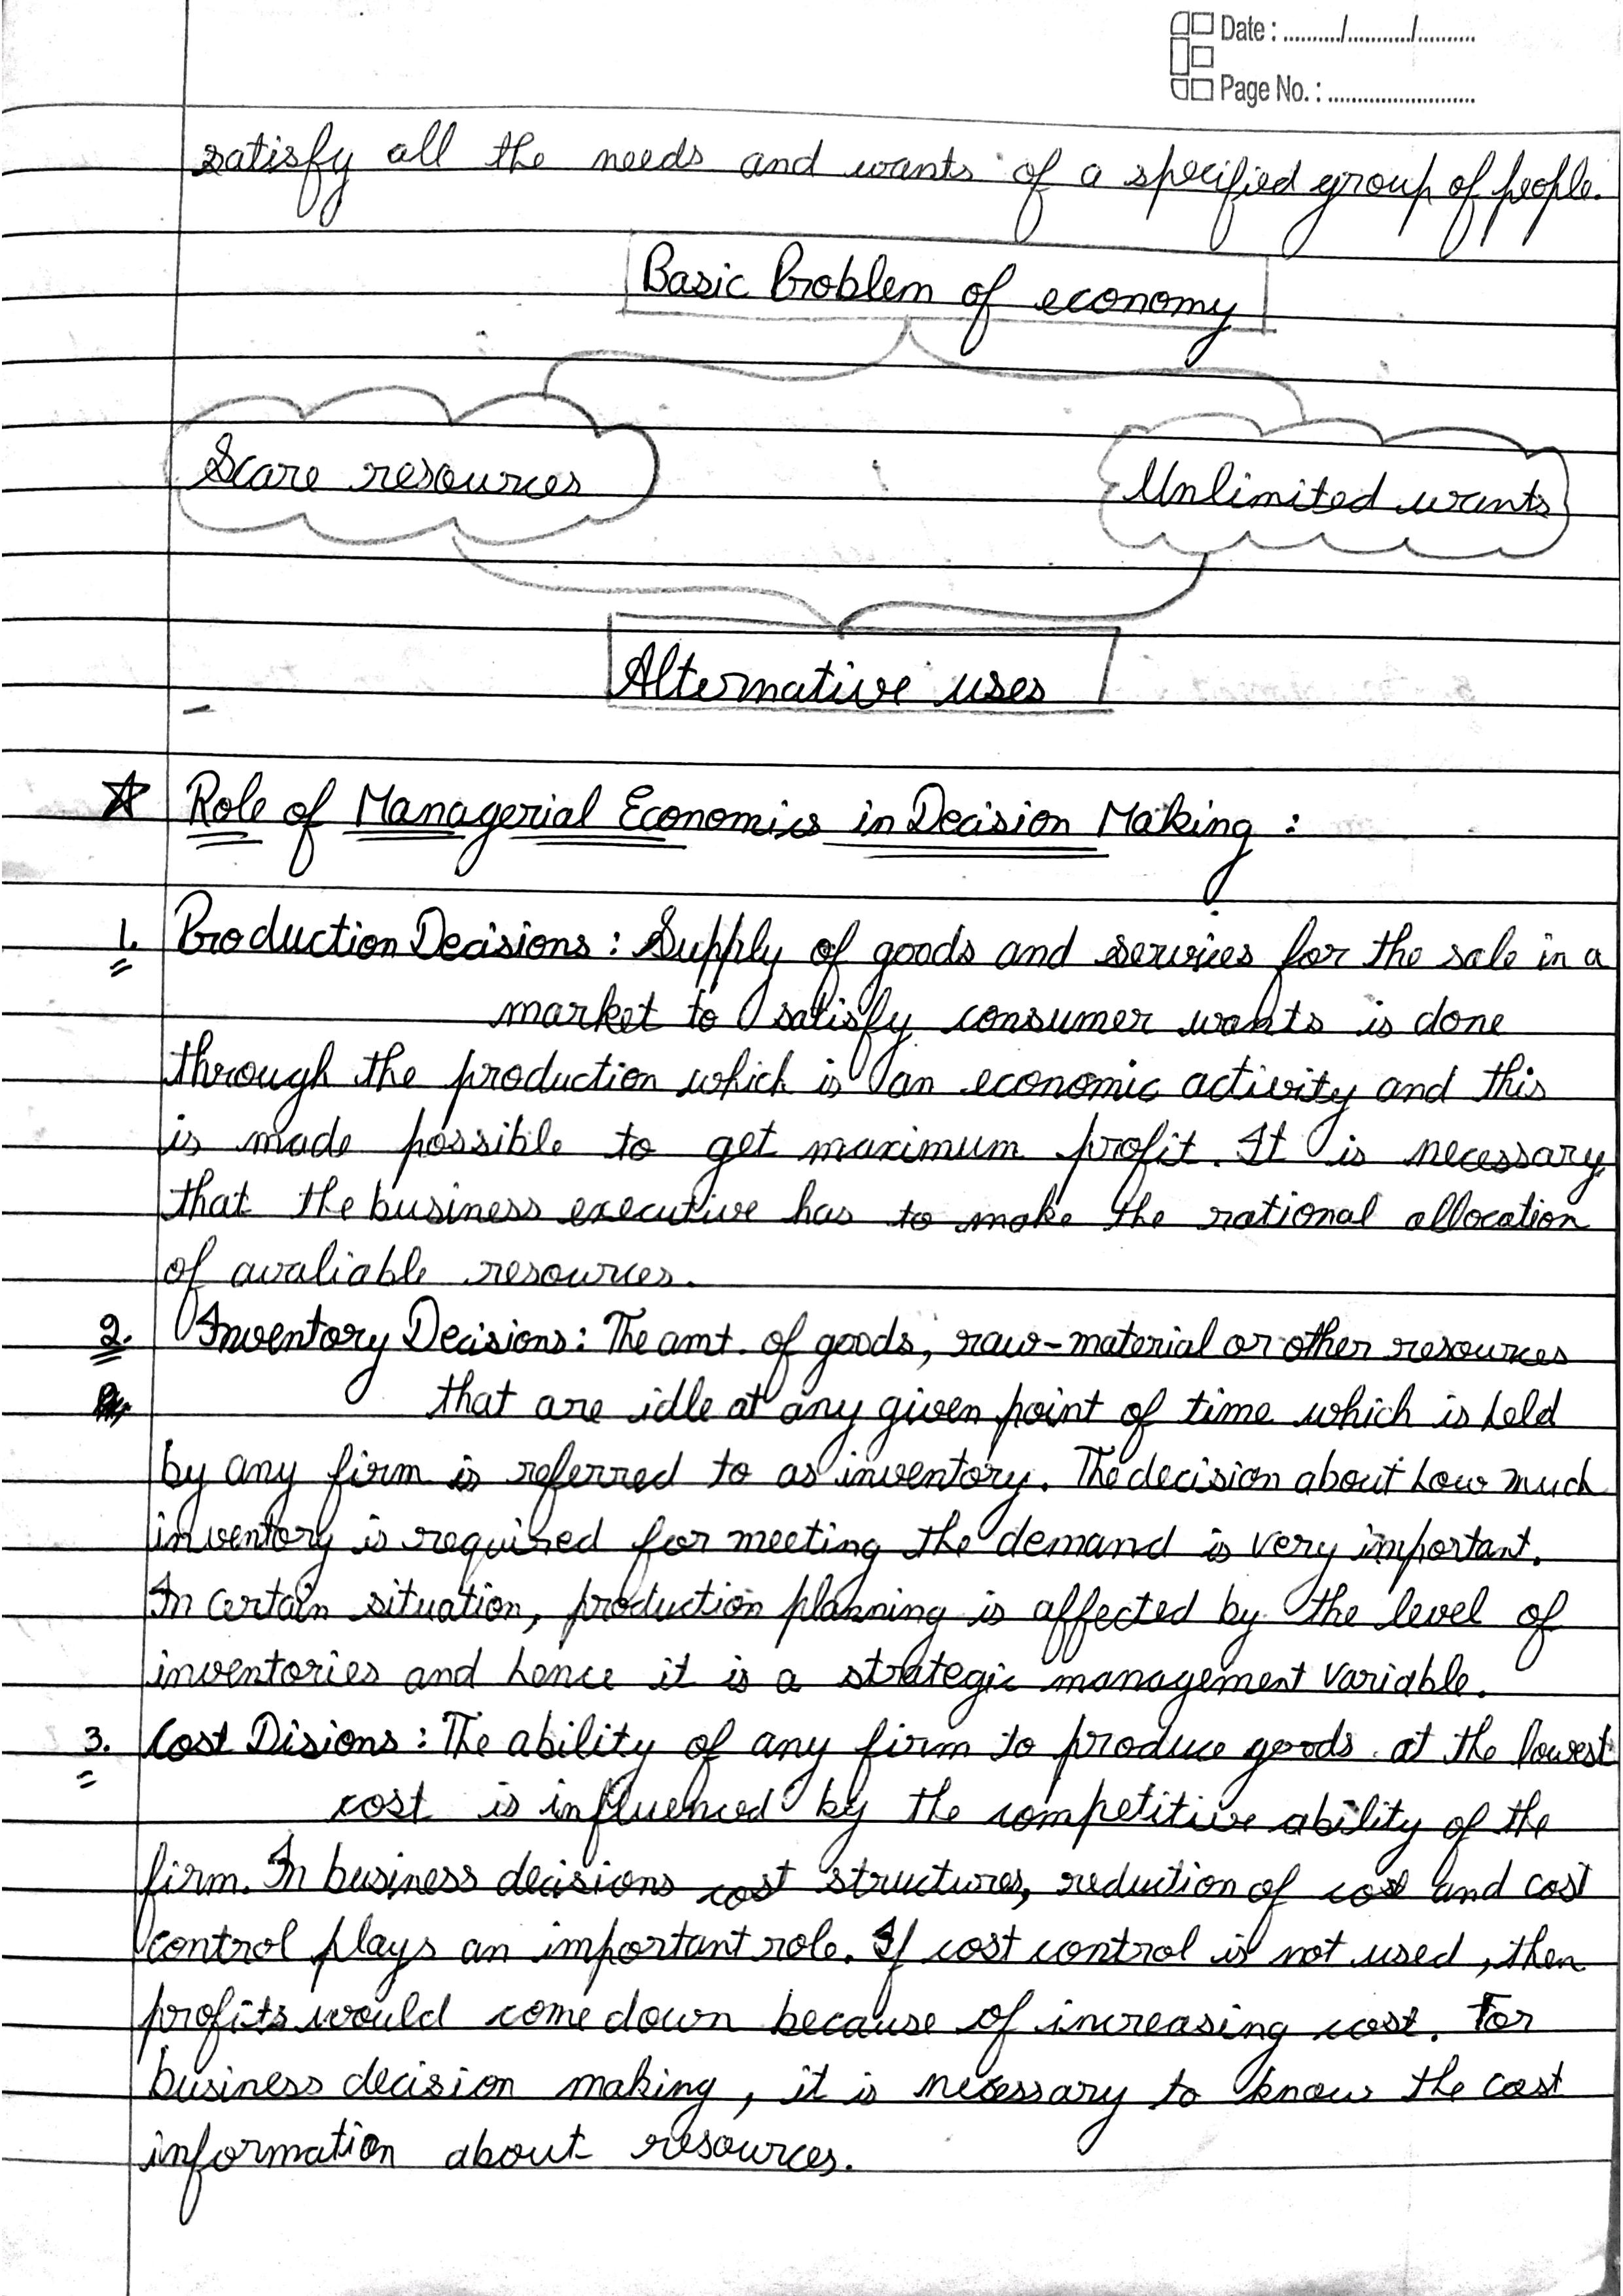 Date : ........../.........../..........
Page No. : .........................
satisfy all the needs and wants of a specified group of people.
Basic Problem of economy
Scare resources
Unlimited wants
Alternative uses
☆ Role of Managerial Economics in Decision Making :
1. Production Decisions : Supply of goods and services for the sale in a
market to satisfy consumer wants is done
through the production which is an economic activity and this
is made possible to get maximum profit. It is necessary
that the business executive has to make the rational allocation
of avaliable resources.
2. Inventory Decisions : The amt. of goods, raw-material or other resources
that are idle at any given point of time which is held
by any firm is referred to as inventory. The decision about how much
inventory is required for meeting the demand is very important.
In certain situation, production planning is affected by the level of
inventories and hence it is a strategic management variable.
3. Cost Disions : The ability of any firm to produce goods at the lowest
cost is influenced by the competitive ability of the
firm. In business decisions cost structures, reduction of cost and cost
control plays an important role. If cost control is not used, then
profits would come down because of increasing cost. For
business decision making, it is necessary to know the cost
information about resources.